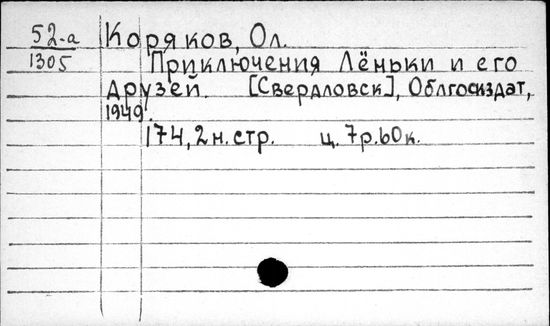 52-а
1305
Коряков, Ол.
Приключения Лёньки и его
друзей. [Свердловск], Облгосиздат,
1949.
174, 2 н. стр. ц. 7р. 60к.